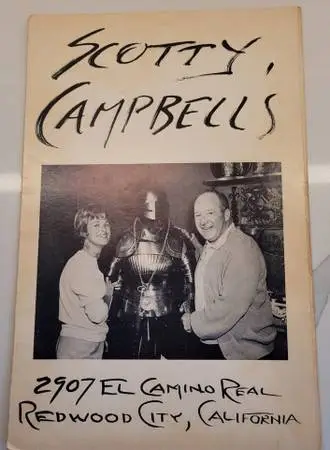 SCOTTY,
CAMPBELLS
2907 EL CAMINO REAL
REDWOOD CITY, CALIFORNIA